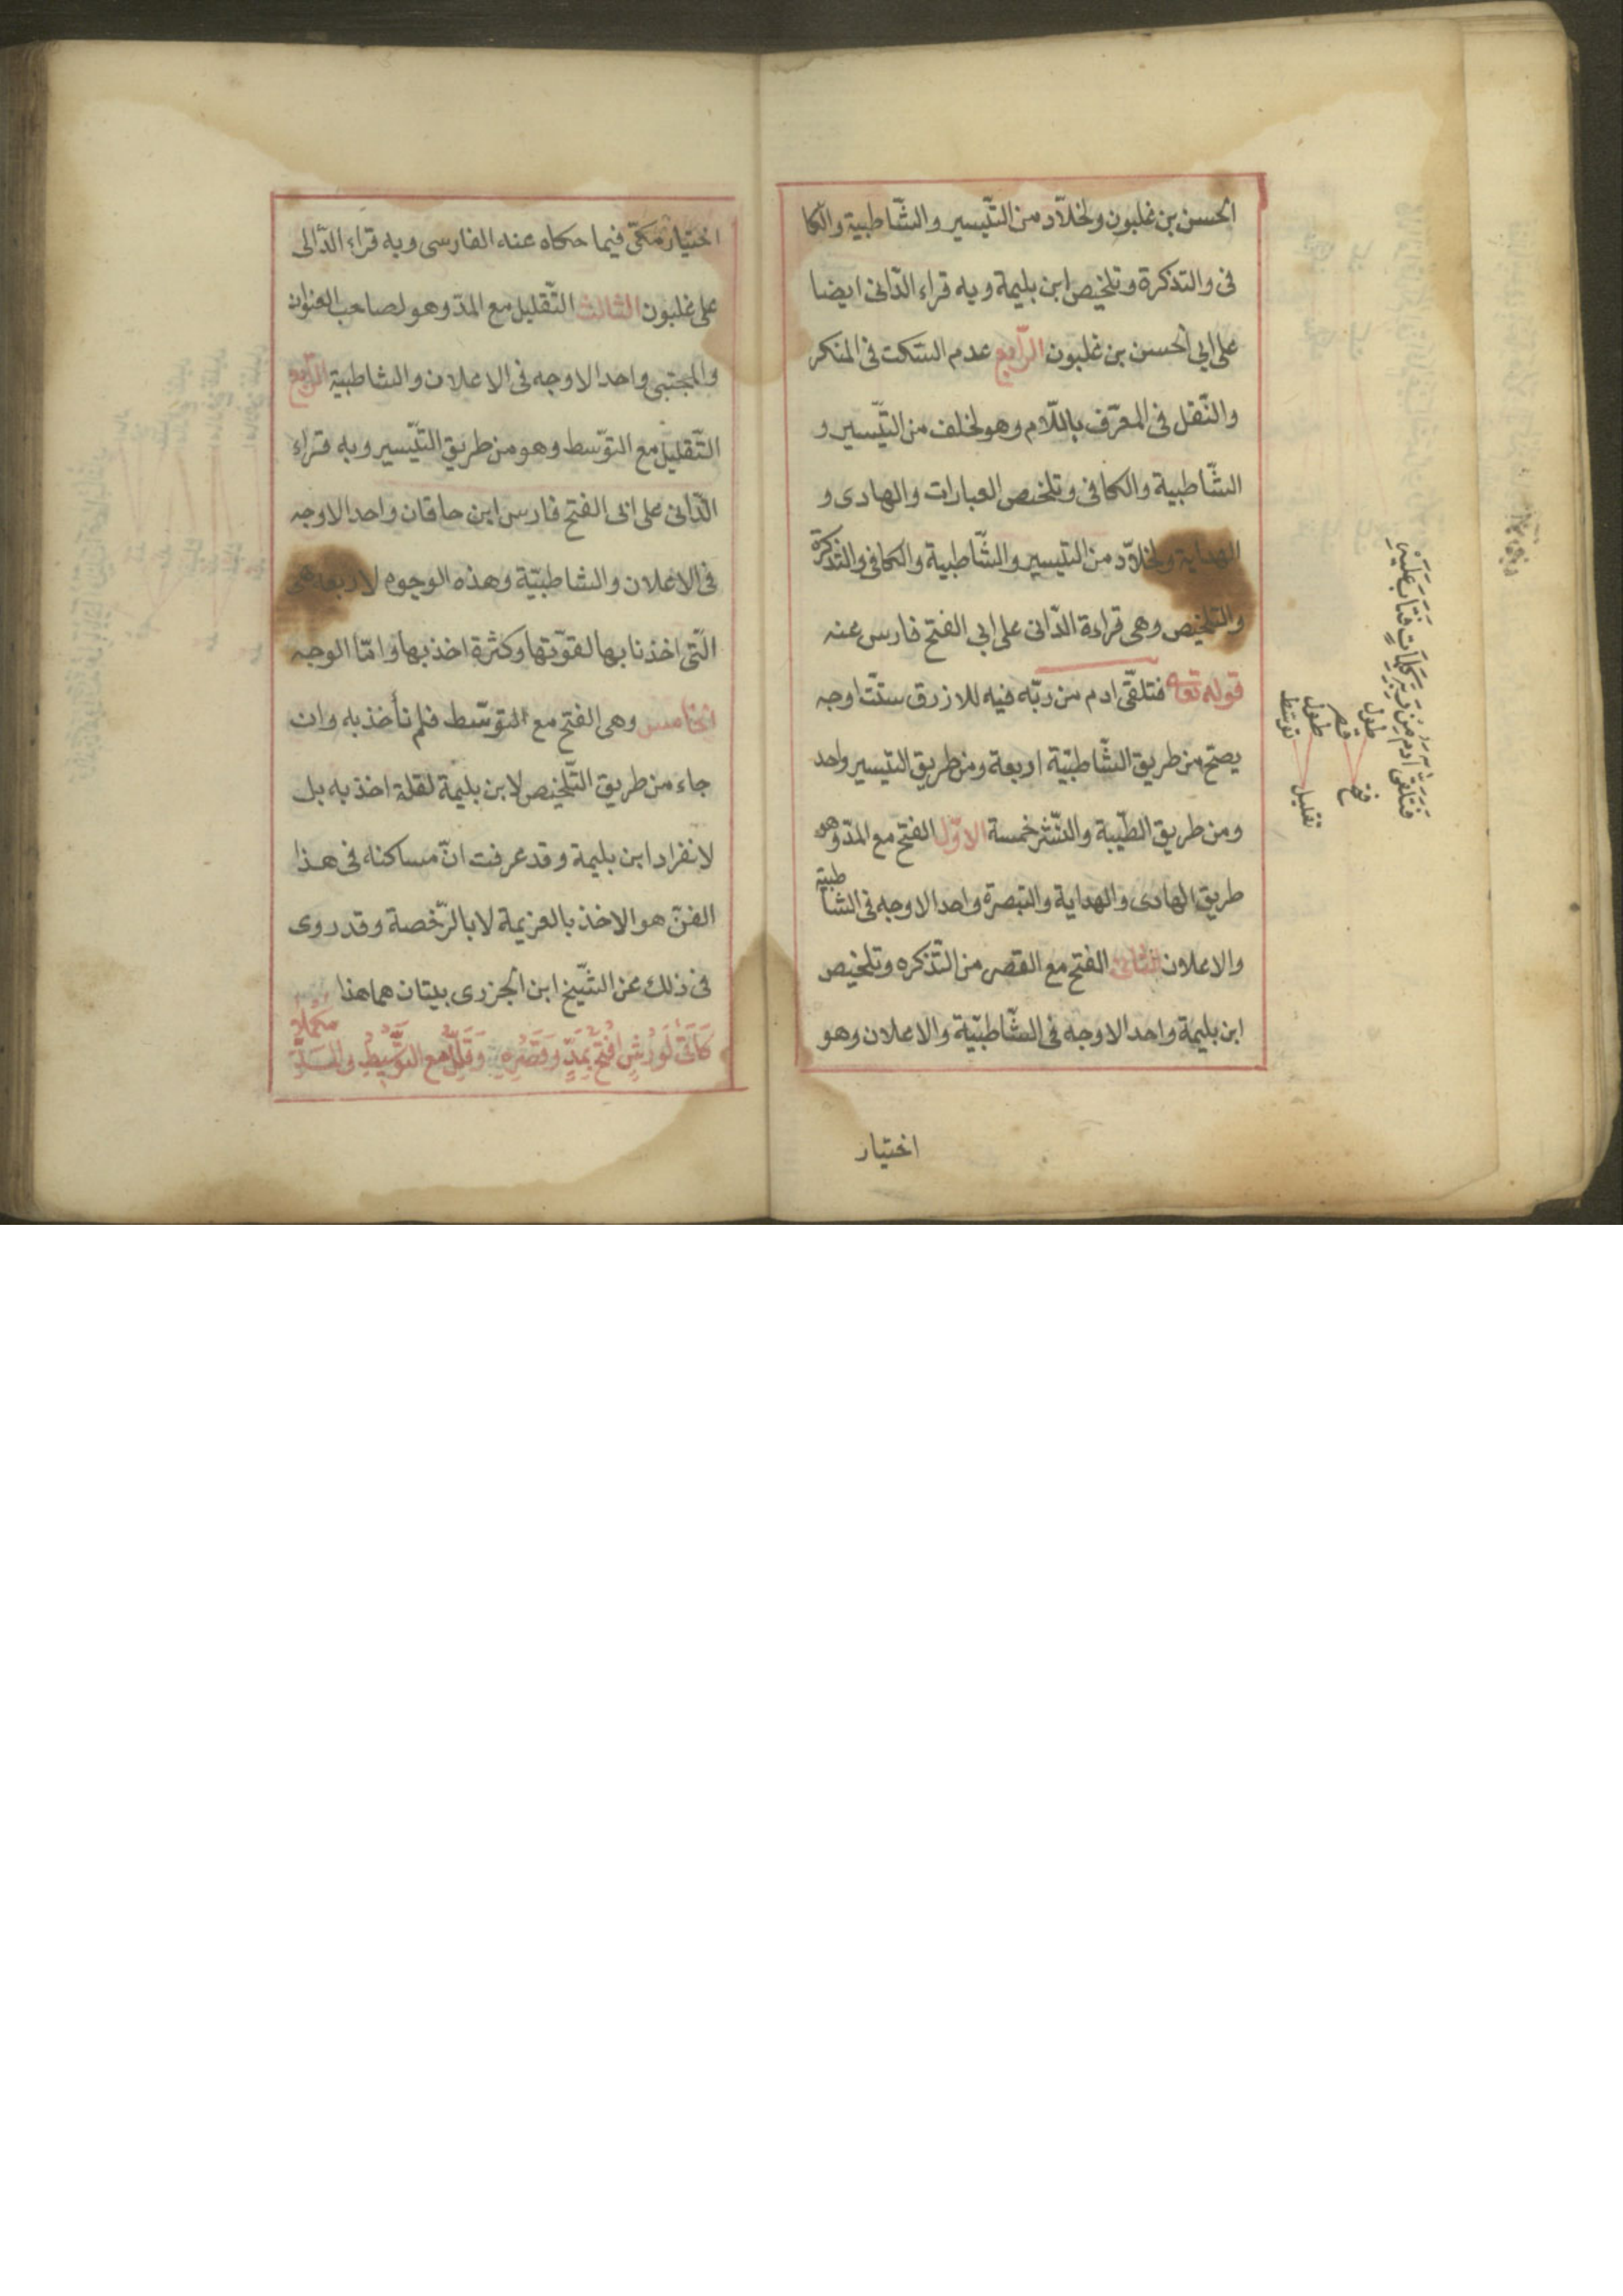 الحسن بن غلبون ولخلاّد من التّيسير والشّاطبية والكا
فى والتذكرة وتلخيص ابن بليمة وبه قراء الدّانى ايضا
على ابى الحسن بن غلبون الرّابع عدم السّكت فى المنكر
والنّقل فى المعرّف باللّام وهو لخلف من التّيسير و
الشّاطبية والكافى وتلخيص العبارات والهادى و
الهداية ولخلاّد من التيسير والشّاطبية والكافى والتذكرة
والتلخيص وهى قراءة الدّانى على ابى الفتح فارس عنه
قوله تعه فتلقّى ادم من ربّه فيه للازرق ستّت اوجه
يصحّ من طريق الشّاطبيّة اربعة ومن طريق التيسير واحد
ومن طريق الطّيبة والنّشر خمسة الاوّل الفتح مع المدّ وهو
طريق الهادى والهداية والتبصرة واحد الاوجه فى الشاطبية
والاعلان الثانى الفتح مع القصر من التّذكره وتلخيص
ابن بليمة واحد الاوجه فى الشّاطبيّة والاعلان وهو
اختيار
فَتَلَقَّى آدَمُ مِنْ رَبِّهِ كَلِمَاتٍ فَتَابَ عَلَيْهِ
طول قصر طول توسّط
فتح تقليل
اختيار مكّى فيما حكاه عنه الفارسى وبه قراء الدّالى
على غلبون الثالث التّقليل مع المدّ وهو لصاحب العنوان
والمجتبى واحد الاوجه فى الاعلان والشاطبية الرّابع
التّقليل مع التوّسط وهو من طريق التّيسير وبه قراء
الدّانى على ابى الفتح فارس ابن خاقان واحد الاوجه
فى الاعلان والشاطبيّة وهذه الوجوه لاربعة هى
الّتى اخذنا بها لقوّتها وكثرة اخذ بها وامّا الوجه
الخامس وهى الفتح مع التوسّط فلم نأخذ به وان
جاء من طريق التّلخيص لابن بليمة لقلة اخذ به بل
لانفراد ابن بليمة وقد عرفت انّ مساكنه فى هذا
الفنّ هو الاخذ بالعزيمة لا بالرّخصة وقد روى
فى ذلك عن الشّيخ ابن الجزرى بيتان هما هذا
كَآتَى لِوَرْشٍ افْتَحْ بِمَدٍّ وَقَصْرِهِ وَقَلِّلْ مع التَّوْسِيطِ والمدّ مكملا